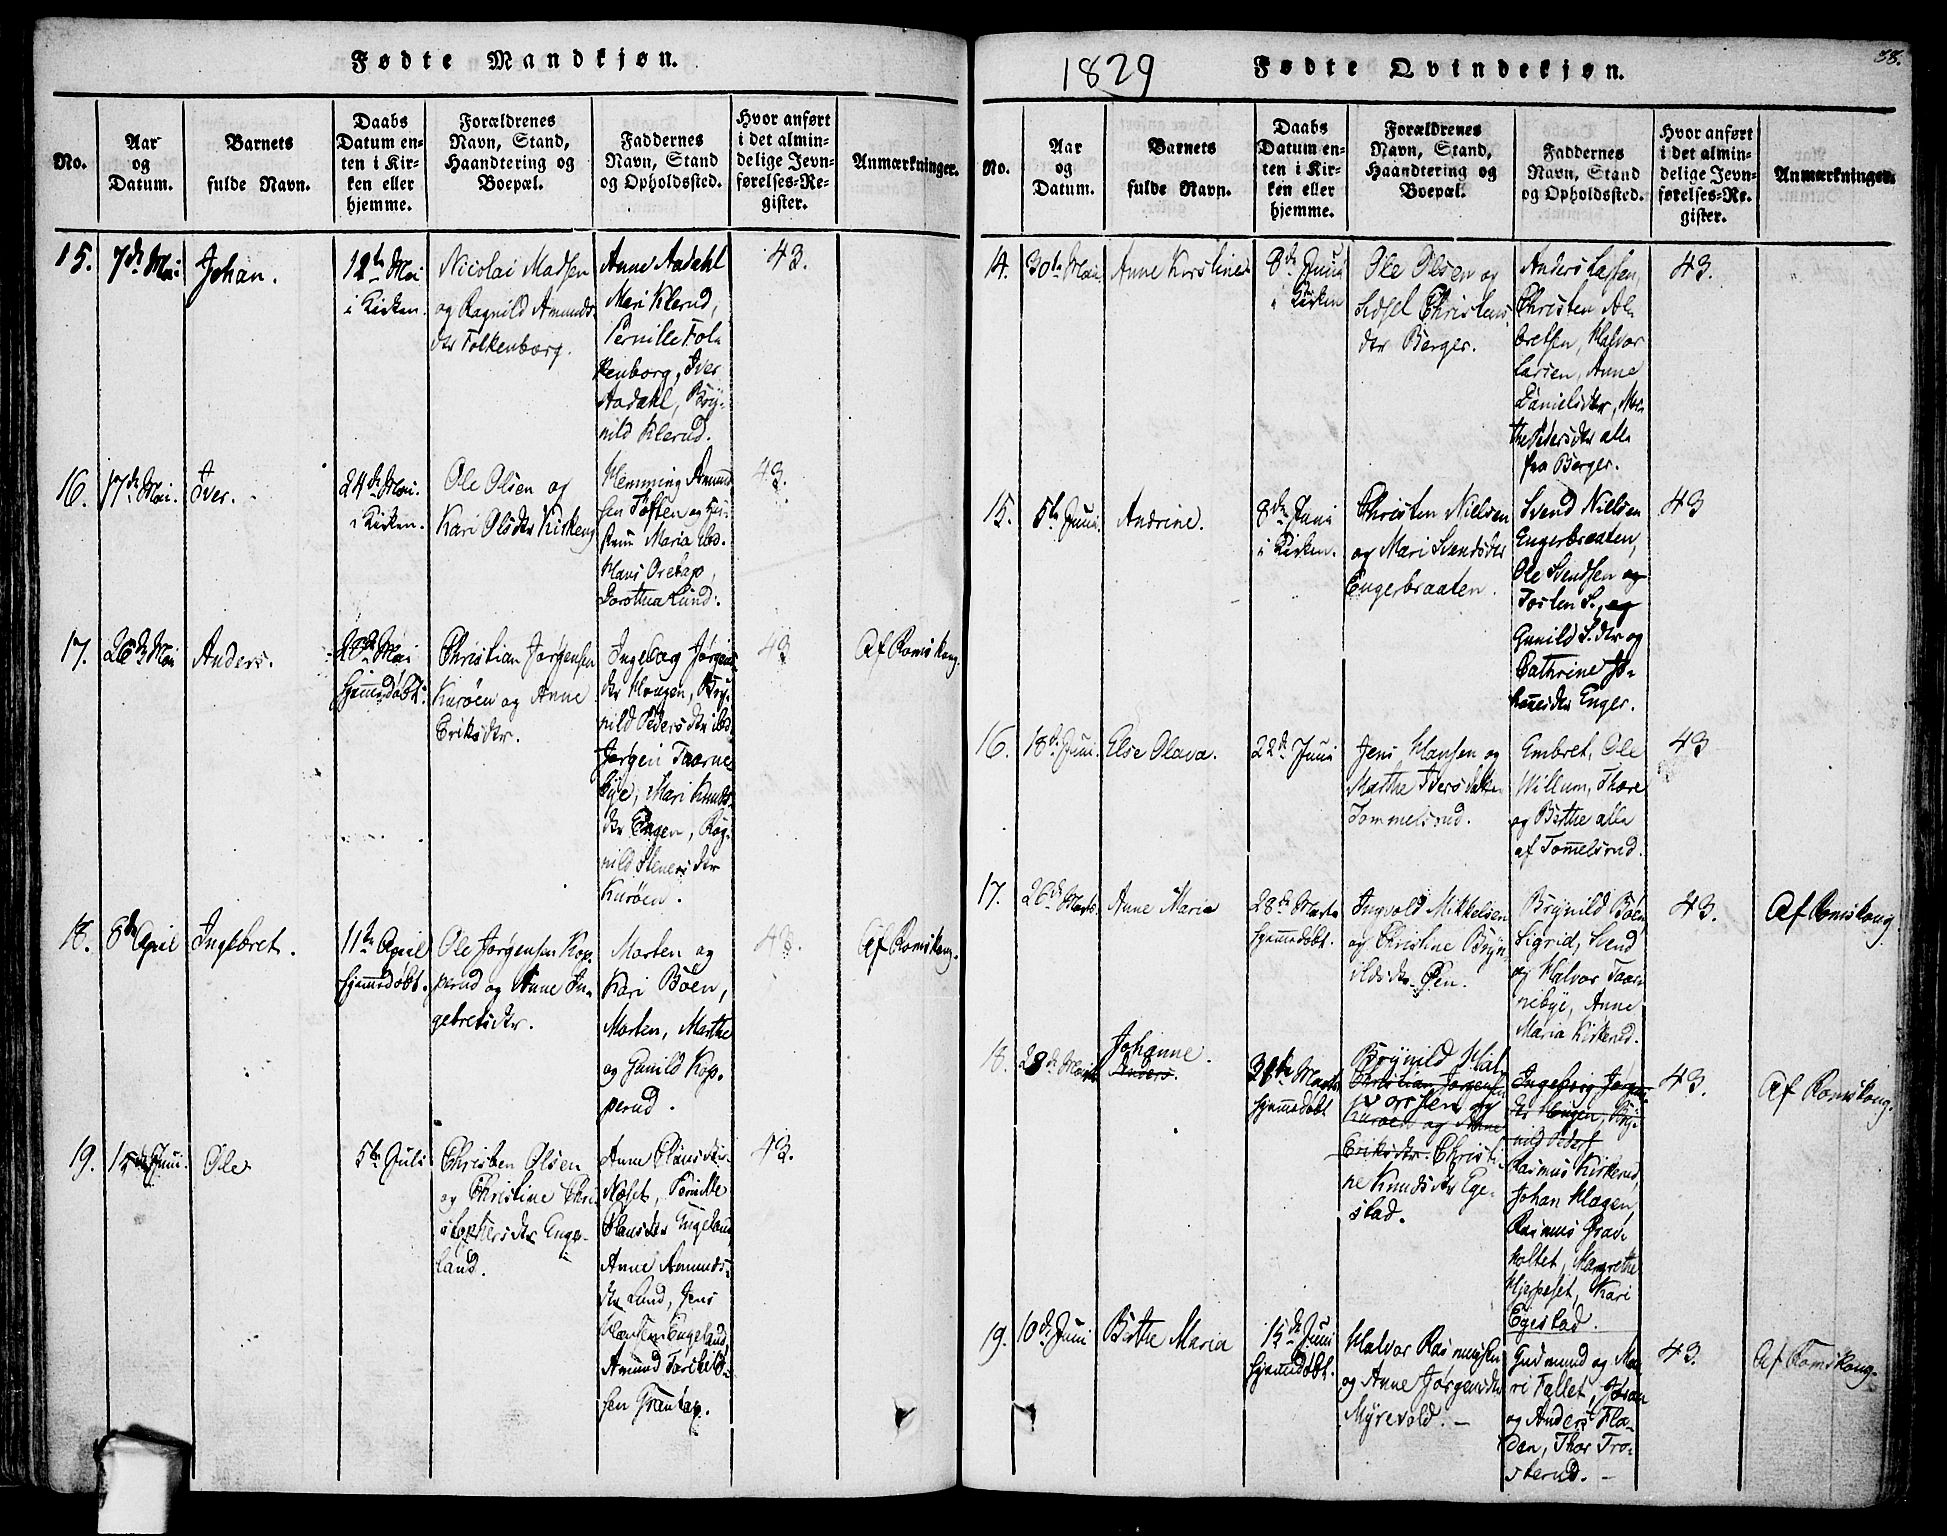 Fødte Mandkjøn.
No.
Aar
og
Datum.
Barnets
fulde Navn.
Daabs
Datum en-
ten i Kir-
ken eller
hjemme.
Forældrenes
Navn, Stand,
Haandtering og
Boepæl.
Faddernes
Navn, Stand
og Opholdssted.
Hvor anført
i det almin-
delige Jevn-
førelses-Re-
gister.
Anmærkninger.
15.
7de Mai
Johan.
12te Mai
i Kirken.
Nicolai Madsen
og Ragnild Amunds-
dtr Folkenborg.
Anne Aadahl
Mari Klerud,
Pernille Fol-
kenborg, Iver
Aadahl, Bry-
nild Klerud.
43.
16.
17de Mai.
Iver.
24de Mai.
i Kirken.
Ole Olsen og
Kari Olsdtr Kirkeng
Hemming Amund
sen Toften og Hu-
struu Maria ibd.
Hans Oretap,
Dorothea Lund.
43.
17.
26de Mai
Anders.
28de Mai
hjemmedøbt.
Christian Jørgensen
Kurøen og Anne
Eriksdtr.
Ingeborg Jørgens
dtr Hougen, Bry-
nild Pedersdtr ibd.
Jørgen Taarne
bye, Mari Knuds-
dtr Engen, Rag-
nild Steners dtr
Kurøen.
43
Af Romskoug.
18.
8de April
Ingebret.
11te April
hjemmedøbt.
Ole Jørgensen Kop-
perud og Anne In-
gebretsdtr.
Morten og
Kari Böen,
Morten, Marthe
og Gunild Kop-
perud.
43.
Af Romskoug.
19.
15de Juni.
Ole
5te Juli
Christen Olsen
og Christine Chri-
stophersdtr Enge-
land.
Anne Olausdtr
Næset, Pernille
Olausdtr Engeland
Anne Amunds-
dtr Lund, Jens
Hansen Engeland,
Amund Torkeld-
sen Grøntap.
43.
1829
Fødte Qvindekjøn.
38.
No.
Aar
og
Datum.
Barnets
fulde Navn.
Daabs
Datum en-
ten i Kir-
ken eller
hjemme.
Forældrenes
Navn, Stand,
Haandtering og
Boepæl.
Faddernes
Navn, Stand
og Opholdssted.
Hvor anført
i det almin-
delige Jevn-
førelses-Re-
gister.
Anmærkninger.
14.
30te Mai
Anne Kirstine
8de Juni
i Kirken
Ole Olsen og
Sidsel Christens
dtr Berger.
Anders Larsen,
Christen Al-
bretsen, Halvor
Larsen, Anne
Danielsdtr, Mar-
the Pedersdtr alle
fra Berger.
43.
15.
5te Juni
Andrine.
8de Juni
i Kirken.
Christen Nielsen
og Mari Svendsdtr
Engerbraaten.
Svend Nielsen
Engerbraaten,
Ole Svendsen og
Josten S., og
Gunild S.dtr og
Cathrine Jo-
hanesdtr Enger.
43
16.
18de Juni.
Else Olava.
22de Juni
Jens Hansen og
Marthe Iversdatter
Tommelsrud.
Embret, Ole
Willum, Thore
og Birthe alle
af Tommelsrud.
43
17.
26de Marts
Anne Maria
28de Marts
hjemmedøbt.
Ingvold Mikkelsen
og Christine Bryn
ildsdtr Øen.
Brynild Böen
Sigrid, Svend
og Halvor Taar-
nebye, Anne
Maria Kirkerud.
43.
Af Romskoug.
18.
28de Marts
Johanne.
Anders.
31te Marts
hjemmedøbt
Brynild Hal-
Christian Jørgensen
vorsen og
Kurøen og Anne
Eriksdtr. Christi-
ne Knudsdtr Ege-
stad.
Ingeborg Jørgens-
dtr Hougen, Bry-
nild Peders
Rasmus Kirkerud,
Johan Hagen,
Rasmus Graa-
holtet, Margrethe
Hjerpeset, Kari
Egestad.
43.
Af Romskoug.
19.
10de Juni
Birthe Maria
15de Juni
hjemmedøbt.
Halvor Rasmussen
og Anne Jørgensdtr
Myrevold.
Gudmund og Ma-
ri Fallet, Jøran
og Anders Fla-
den, Thor Tro-
sterud.
43.
Af Romskoug.